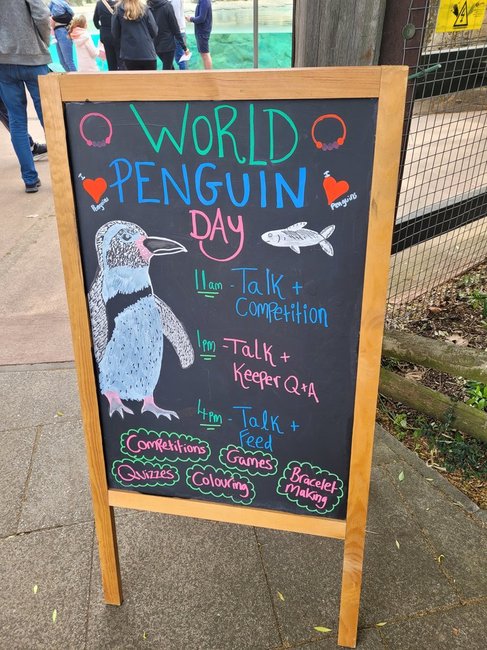 WORLD
PENGUIN
DAY
I
Penguins
I
Penguins
11am - Talk +
Competition
1pm - Talk +
Keeper Q+A
4pm - Talk +
Feed
Competitions
Games
Quizzes
Colouring
Bracelet
Making